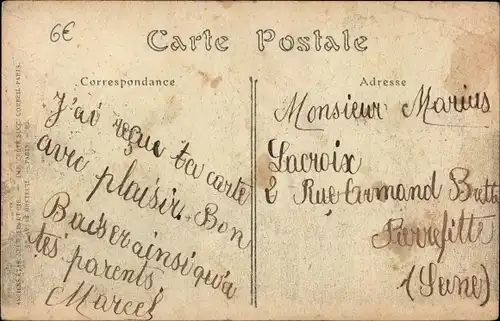 6€
Carte Postale
Correspondance
Adresse
J'ai reçue ta carte
avec plaisir. Bon
Baiser ainsi qu'a
tes parents.
Marcel
Monsieur Marius
Lacroix
Rue Armand
Pierrefitte
(Seine)